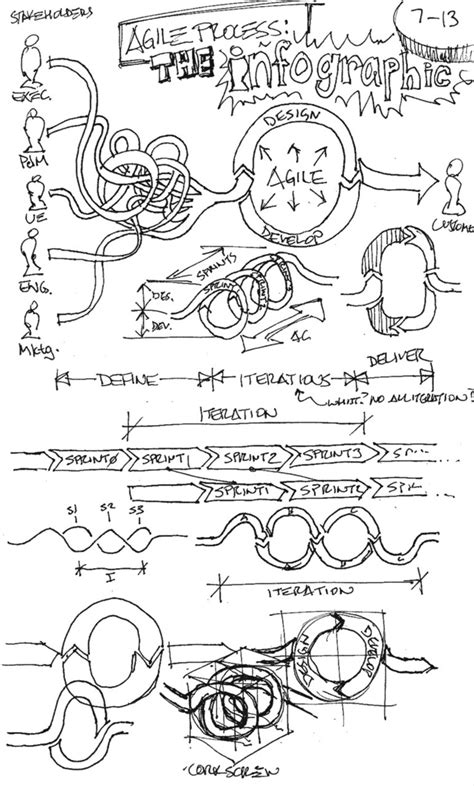 STAKEHOLDERS
AGILE PROCESS:
THE infographic
7-13
EXEC.
PdM
UE
ENG.
Mktg.
DESIGN
AGILE
DEVELOP
CUSTOME
SPRINTS
DES.
DEV.
SPRINT
SPRINT
AG
DEFINE
ITERATIONS
DELIVER
WHAT? NO ALLITERATION?
ITERATION
SPRINT0
SPRINT1
SPRINT2
SPRINT3
SP...
SPRINT1
SPRINT2
S1
S2
S3
I
A
B
C
A
B
C
ITERATION
DESIGN
DEVELOP
CORKSCREW